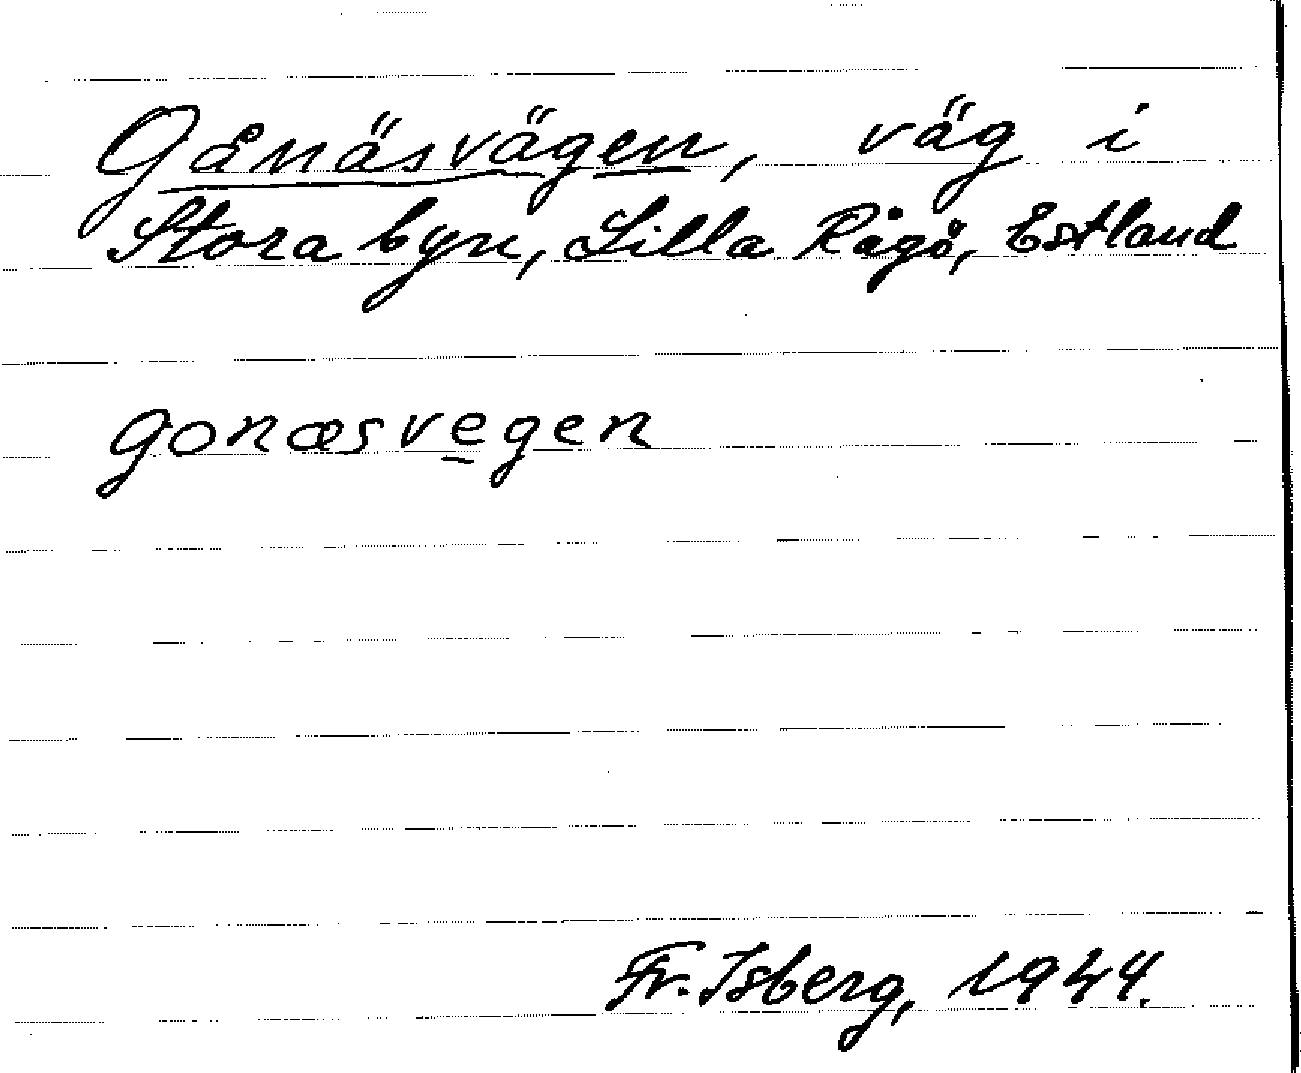 Gånäsvägen, väg i
Stora byn, Lilla Rågö, Estland
gonæsvegen
Fr. Isberg, 1944.